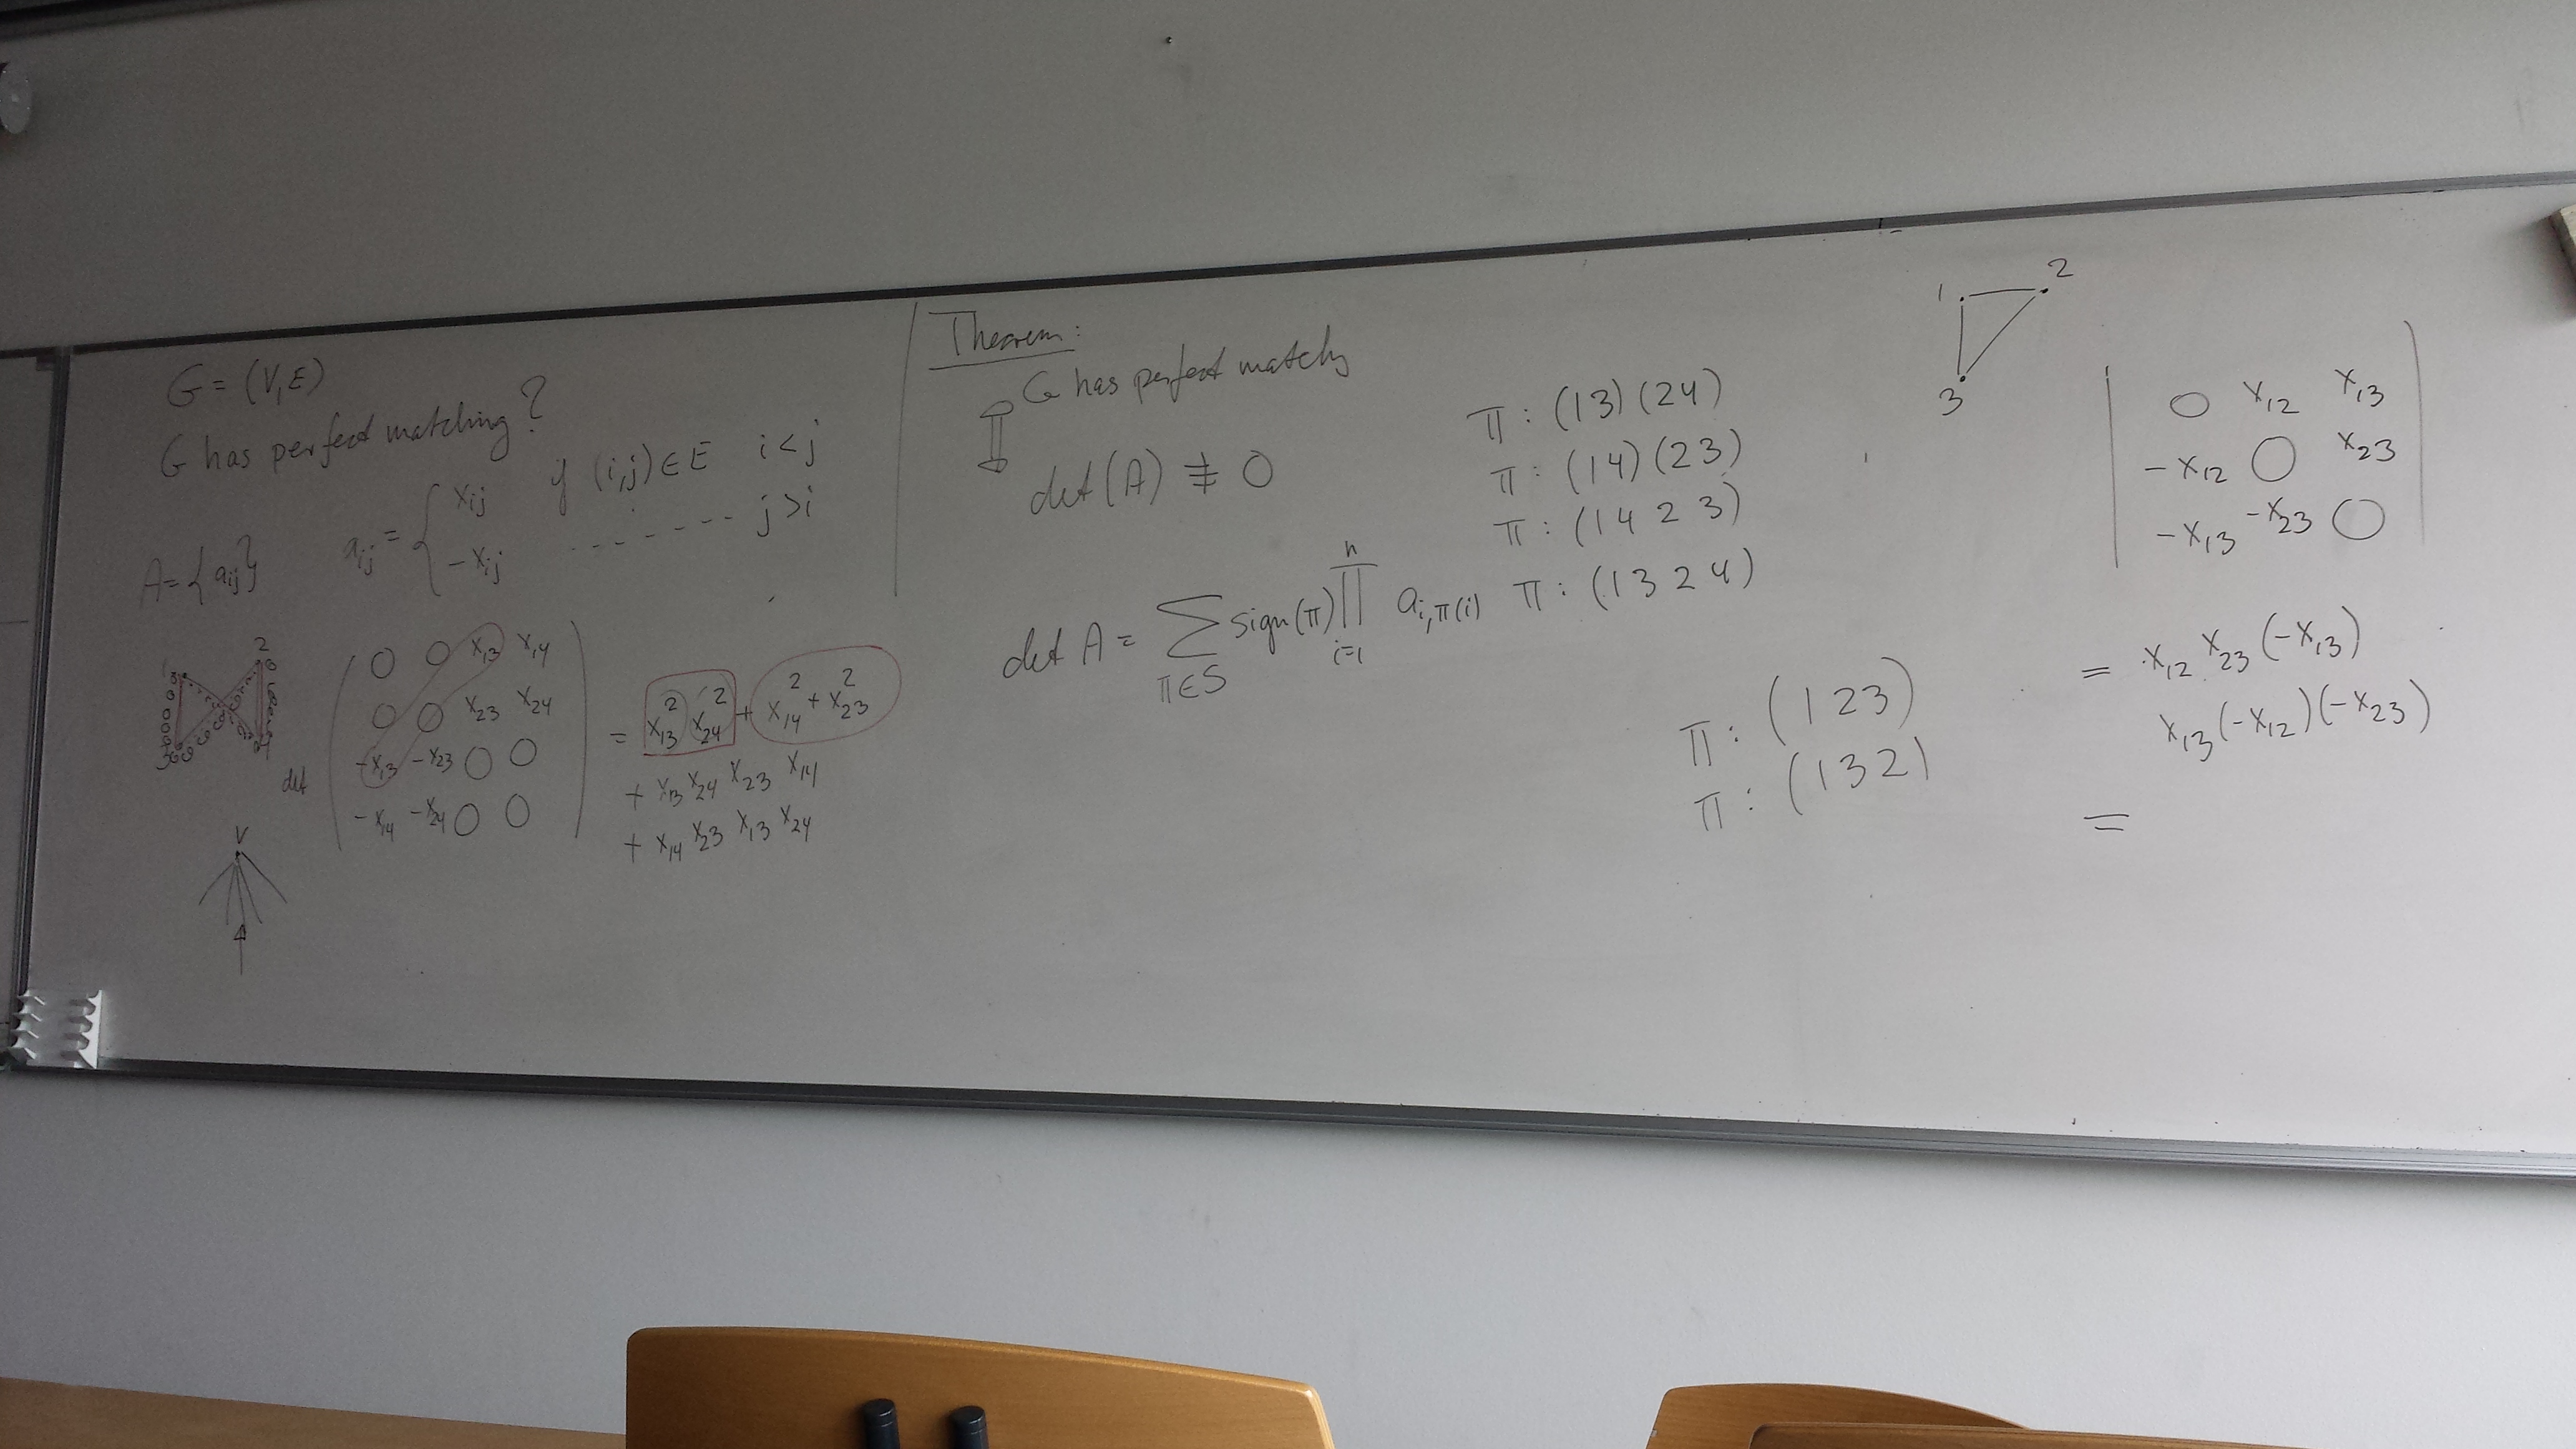 G = (V,E)
G has perfect matching?
A = {a_ij}
a_ij = { x_ij if (i,j) ∈ E i < j
-x_ij - - - - - - - j > i
1 2
3 4
det
( 0 0 x_13 x_14 )
0 0 x_23 x_24
-x_13 -x_23 0 0
-x_14 -x_24 0 0
= x_13^2 x_24^2 + x_14^2 + x_23^2
+ x_13 x_24 x_23 x_14
+ x_14 x_23 x_13 x_24
V
Theorem:
G has perfect matching
⇕
det(A) ≢ 0
π : (13)(24)
π : (14)(23)
π : (1423)
π : (1324)
det A = ∑_{π∈S} sign(π) ∏_{i=1}^{n} a_{i,π(i)}
π : (123)
π : (132)
1 2
3
| 0 x_12 x_13 |
-x_12 0 x_23
-x_13 -x_23 0
= x_12 x_23 (-x_13)
x_13 (-x_12)(-x_23)
=